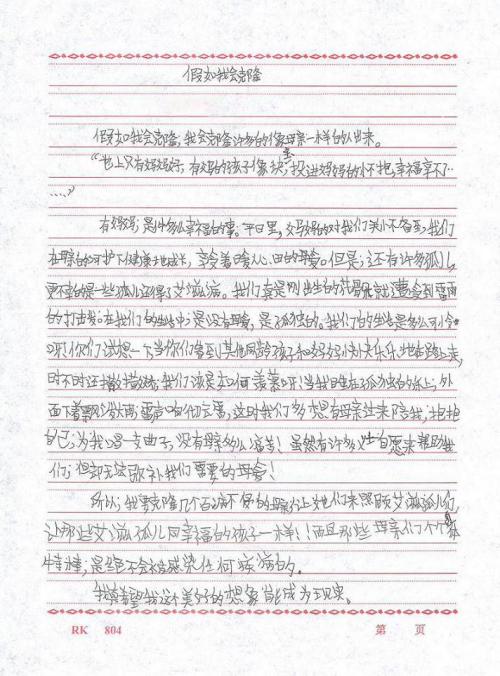 假如我会克隆
假如我会克隆,我会克隆许多的像母亲一样的人出来。
"世上只有妈妈好,有妈的孩子像块宝,投进妈妈的怀抱,幸福享不了
……"
有妈妈是件多么幸福的事。平日里,妈妈的对我们关心不备至,我们
在母亲的呵护下健康地成长,享受着暖人心田的母爱。但是,还有许多孤儿,
更不幸的是一些孤儿还得了艾滋病。我们真是刚出生的花骨朵就遭受到雷雨
的打击。在我们的生活中,是没有母爱,是孤独的。我们的生活是多么可怜
呀!你们试想一下当你们看到其他同龄孩子和妈妈快快乐乐地在路上走,
时不时还撒撒娇,我们该是如何羡慕呀!当我睡在孤独的床上,外
面下着瓢泼大雨,雷声响彻云霄,这时我们多想有母亲过来陪我,抱抱
自己,为我唱一支曲子,没有母亲多么痛苦!虽然有许多人自愿来帮助我
们,但却无法弥补我们需要的母爱!
所以,我要克隆几个百病不侵的母亲,让她们来照顾艾滋孤儿们,
让那些艾滋孤儿同幸福的孩子一样!而且那些母亲们个个身体
棒棒,是绝不会被感染任何疾病的。
我真希望我这个美好的想象能成为现实。
RK 804 第 页